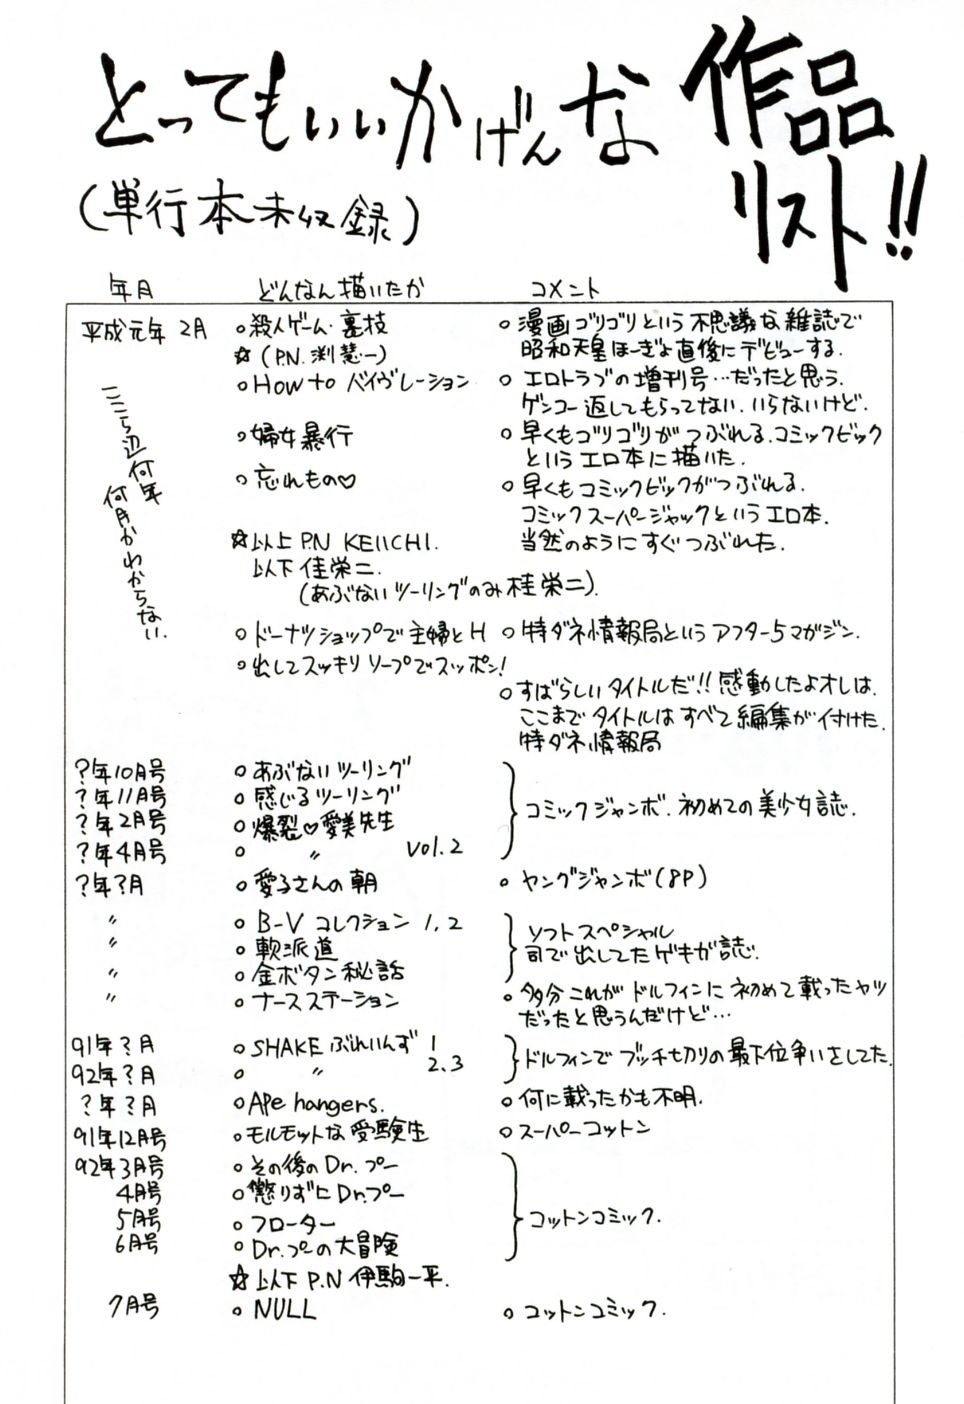 とってもいいかげんな作品リスト!!
(単行本未収録)
年月 どんなん描いたか コメント
平成元年 2月 ○殺人ゲーム・裏技 ○漫画ゴリゴリという不思議な雑誌で
☆(P.N. 渕慧一) 昭和天皇ほーぎょ直後にデビューする.
ここら辺何年
何月かわからない.
○HOW to バイヴレーション ○エロトラブの増刊号…だったと思う.
ゲンコー返してもらってない. いらないけど.
○婦女暴行 ○早くもゴリゴリがつぶれる. コミックビック
というエロ本に描いた.
○忘れもの♡ ○早くもコミックビックがつぶれる.
コミックスーパージャックというエロ本.
☆以上 P.N KEIICHI. 当然のようにすぐつぶれた.
以下 佳栄二.
(あぶないツーリングのみ桂栄二).
○ドーナツショップで主婦とH ○特ダネ情報局というアフター5マガジン.
○出してスッキリソープでスッポン!
○すばらしいタイトルだ!! 感動したよオレは.
ここまでタイトルはすべて編集が付けた.
特ダネ情報局
?年10月号 ○あぶないツーリング
?年11月号 ○感じるツーリング コミックジャンボ. 初めての美少女誌.
?年2月号 ○爆裂♡愛美先生
?年4月号 ○ 〃 Vol.2
?年?月 ○愛子さんの朝 ○ヤングジャンボ(8P)
〃 ○B-V コレクション 1,2 ソフトスペシャル
〃 ○軟派道 司で出してたゲキが誌.
〃 ○金ボタン秘話
〃 ○ナースステーション ○多分これがドルフィンに初めて載ったヤツ
だったと思うんだけど…
91年?月 ○SHAKEぶれいんず 1 ドルフィンでブッチ切りの最下位争いをしてた.
92年?月 ○ 〃 2.3
?年?月 ○Ape hangers. ○何に載ったかも不明.
91年12月号 ○モルモットな受験生 ○スーパーコットン
92年3月号 ○その後のDr.プー
4月号 ○懲りずにDr.プー
5月号 ○フローター コットンコミック.
6月号 ○Dr.プーの大冒険
☆以下 P.N 伊駒一平.
7月号 ○NULL ○コットンコミック.